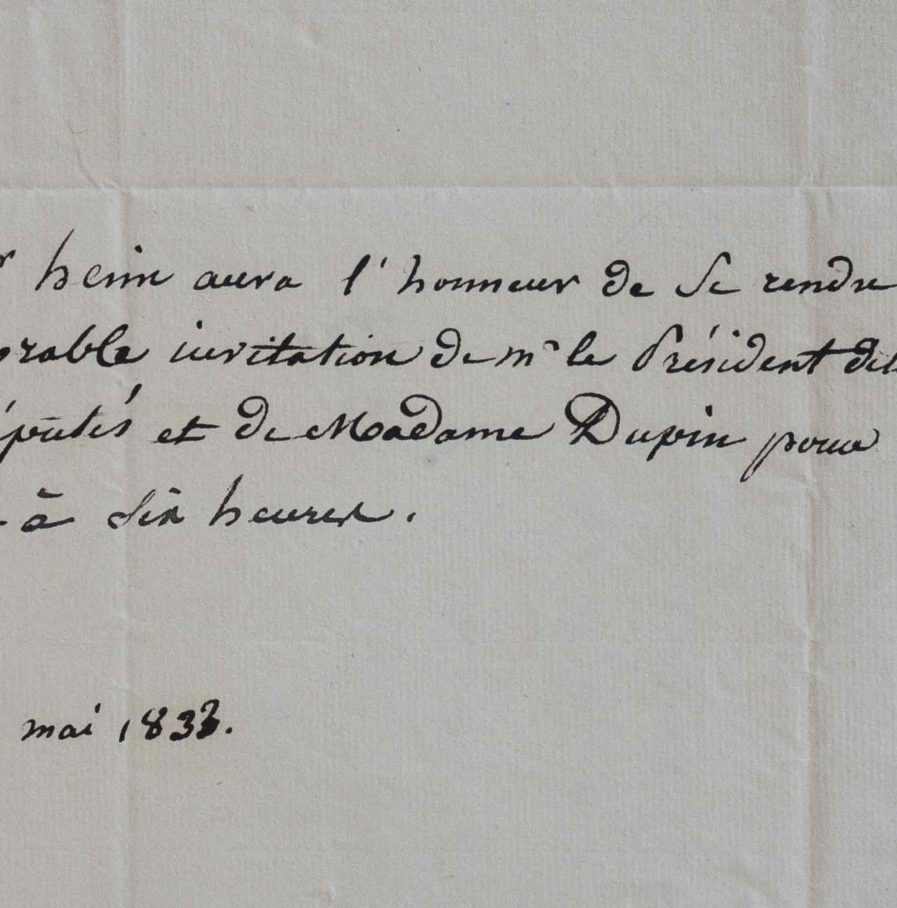 r heim aura l'honneur de se rendre
orable invitation de mr le Président de
éputés et de Madame Dupin pour
à six heures.
mai 1833.